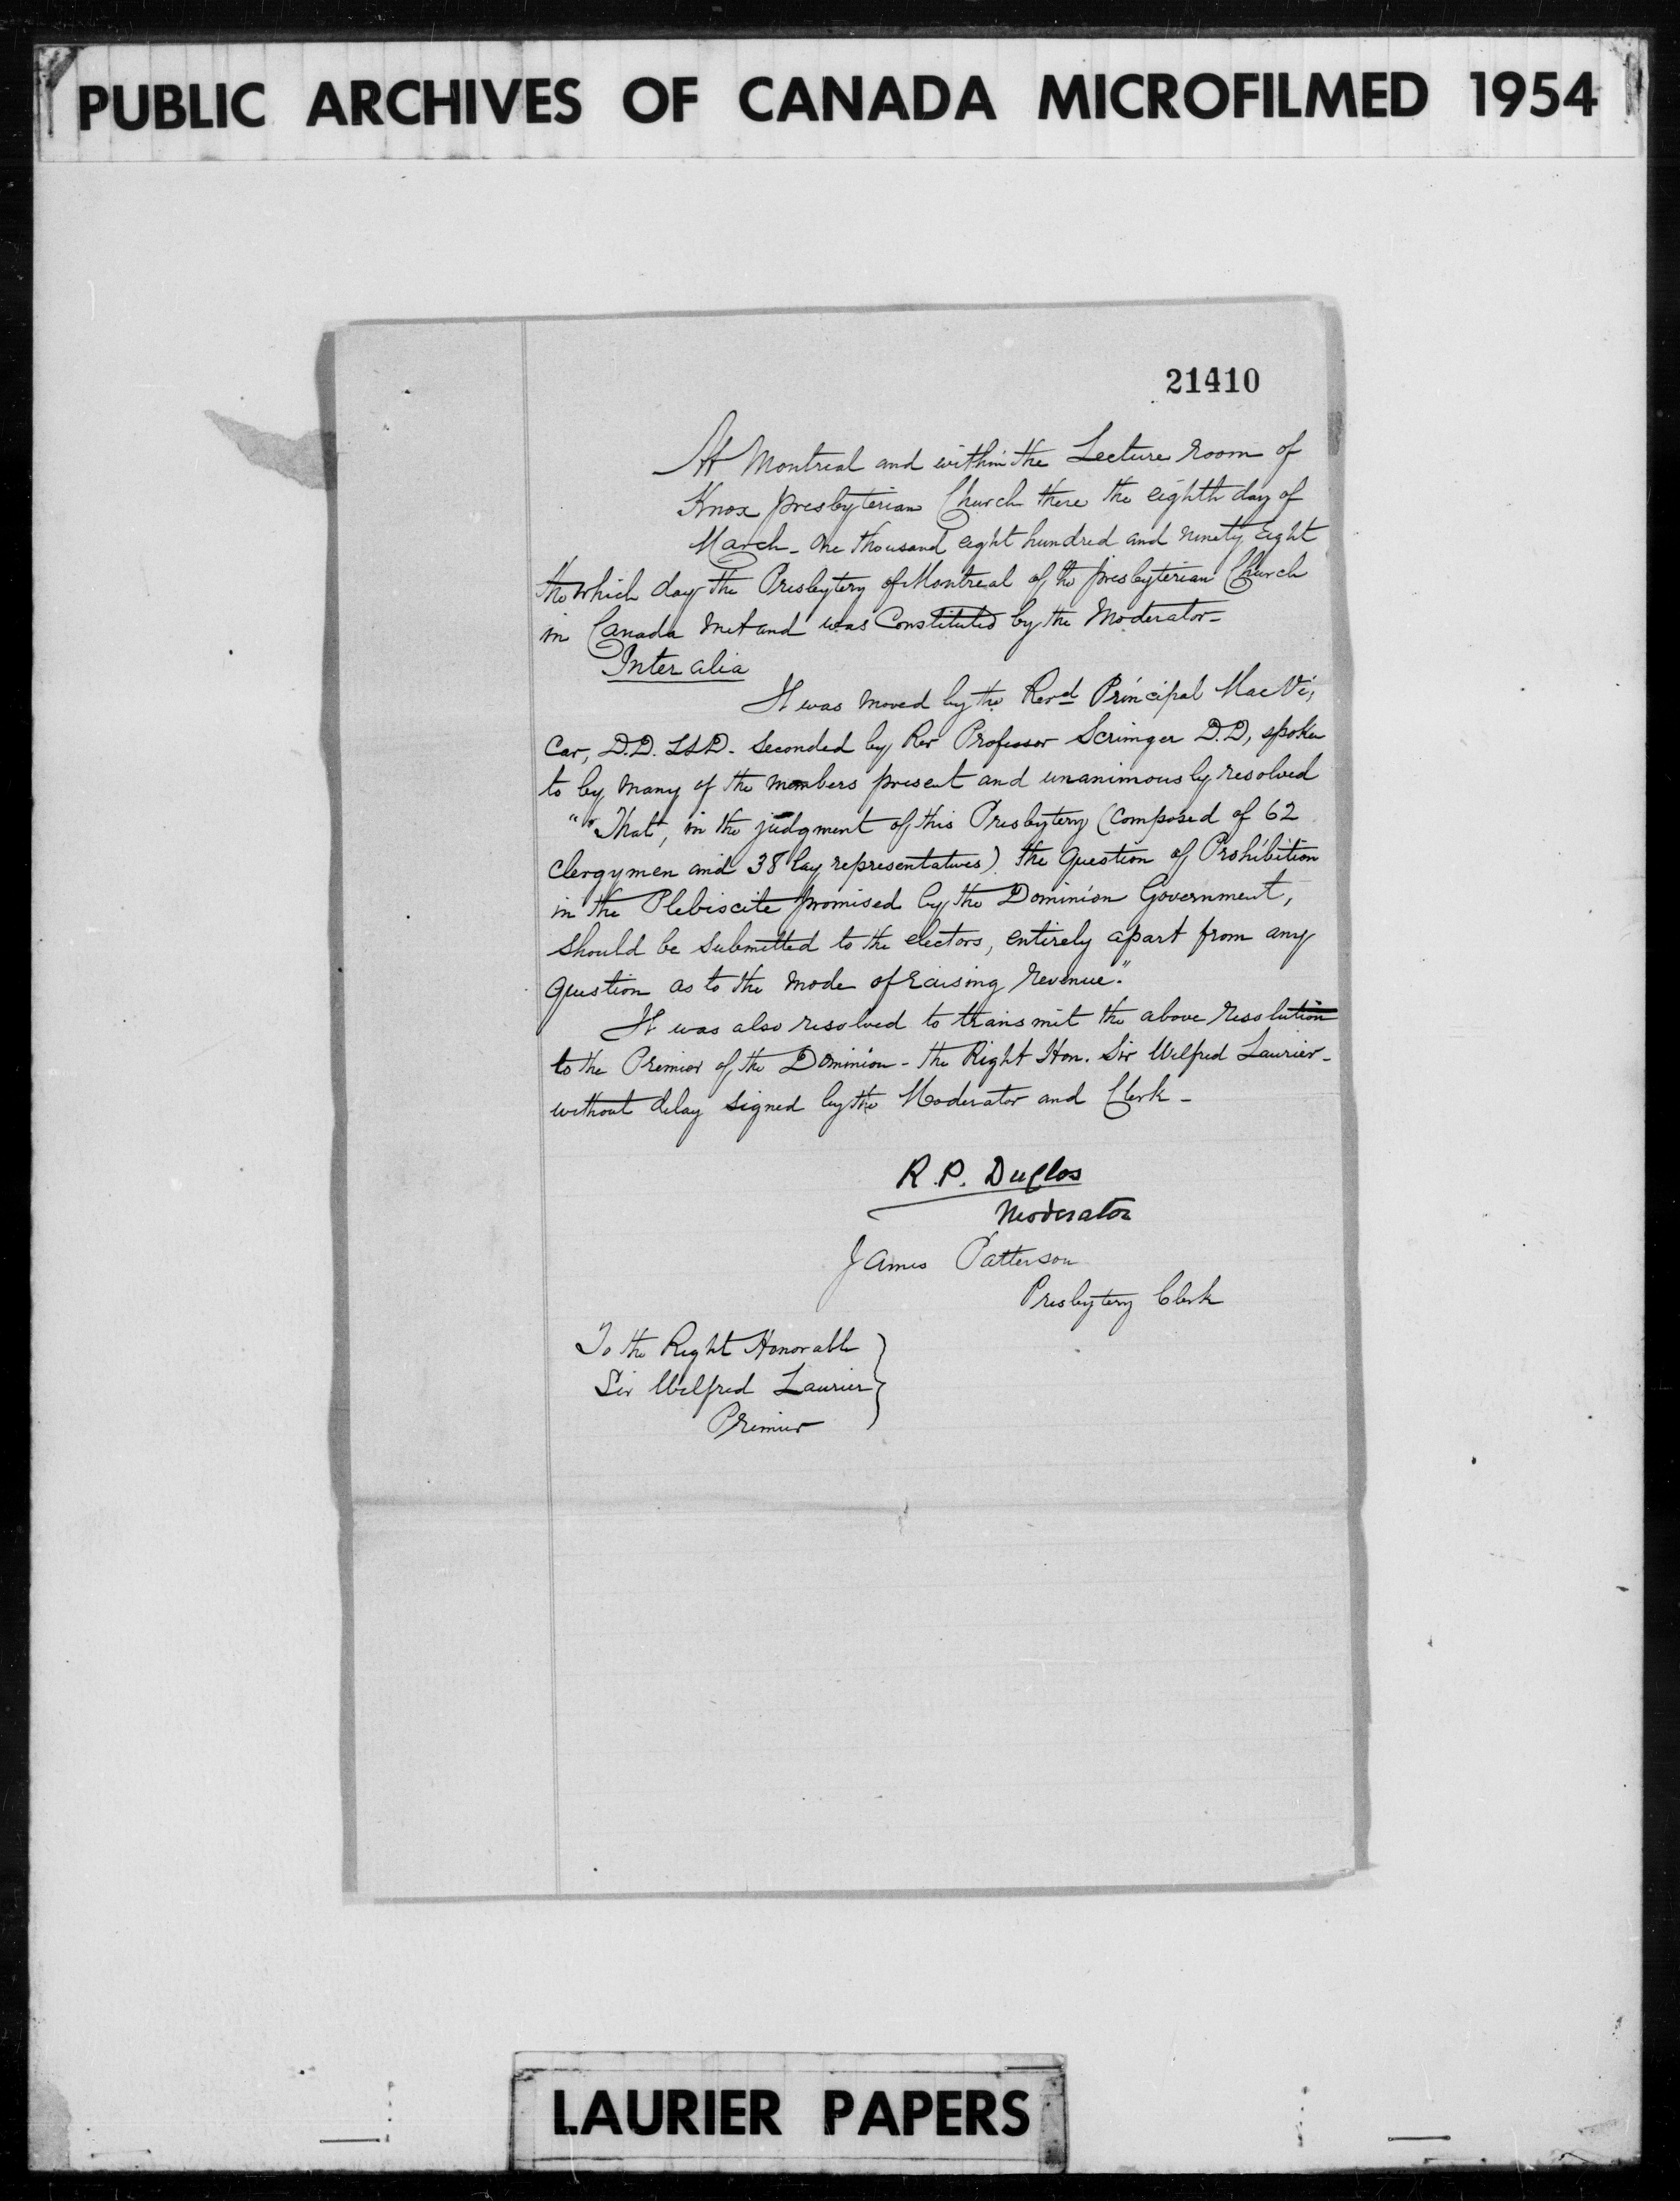 PUBLIC ARCHIVES OF CANADA MICROFILMED 1954
21410
At Montreal and within the Lecture Room of
Knox presbyterian Church there the eighth day of
March - One thousand eight hundred and ninety eight
the which day the Presbytery of Montreal of the presbyterian Church
in Canada met and was Constituted by the Moderator -
Inter alia
It was moved by the Revd Principal Mac Vi,
Car, D.D. LLD. Seconded by Rev Professor Scrimger D.D, spoken
to by many of the members present and unanimously resolved
"“That, in the judgment of this Presbytery (Composed of 62
Clergymen and 38 lay representatives) the Question of Prohibition
in the Plebiscite promised by the Dominion Government,
should be submitted to the electors, entirely apart from any
Question as to the mode of raising revenue."
It was also resolved to transmit the above resolution
to the Premier of the Dominion - the Right Hon. Sir Wilfred Laurier -
without delay signed by the Moderator and Clerk -
R. P. Duclos
Moderator
James Patterson
Presbytery Clerk
To the Right Honorable
Sir Wilfred Laurier
Premier
LAURIER PAPERS